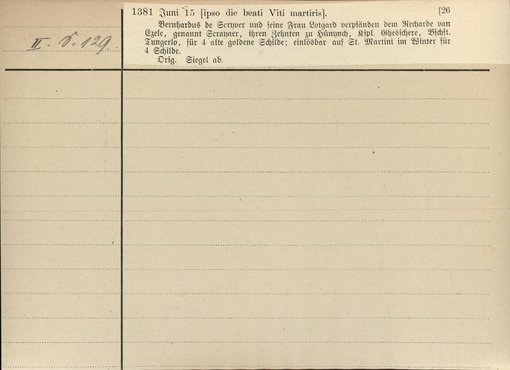 1381 Juni 15 [ipso die beati Viti martiris]. [26
Bernhardus de Scryver und seine Frau Lotgard verpfänden dem Recharde van
Ezele, genannt Scranaer, ihren Zehnten zu Hüntynch, Kspl. Ghesschere, Bschft.
Tungerlo, für 4 alte goldene Schilde; einlösbar auf St. Martini im Winter für
4 Schilde.
Orig. Siegel ab.
II. S. 129.